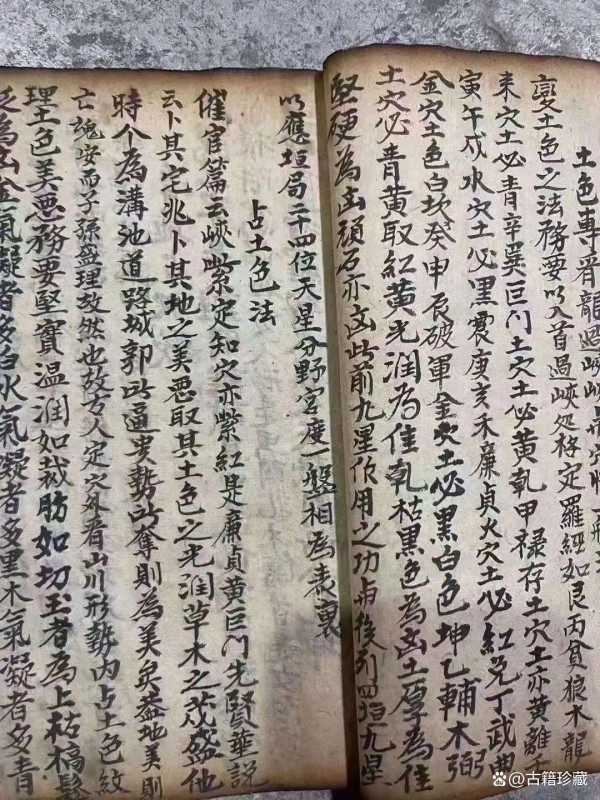 土色專看龍過峽
變土色之法務要以入首過峽処格定羅經如艮丙貪狼木龍
来穴土必青辛巽巨門土穴土必黄乹甲禄存土穴土亦黄離壬
寅午戌水穴土必黒震庚亥未廉貞火穴土必紅兌丁武曲
金穴土色白坎癸申辰破軍金穴土必黑白色坤乙輔木弼
土穴必青黄取紅黄光潤為佳乹枯黒色為凶土厚為佳
堅硬為凶頑石亦凶此前九星作用之功与後列四垣九星
以應垣局二十四位天星分野宮度一盤相為表裏
占土色法
催官篇云峽紫定知穴亦紫紅是廉貞黄巨門先賢華說
云卜其宅兆卜其地之美恶取其土色之光潤草木之茂盛他
時不為溝池道路城郭所逼贵勢所奪則為美矣葢地美則
亡魂安而子孫盛理故然也故方人定穴外看山川形勢内占土色紋
理土色美恶務要堅實温潤如裁肪如切玉者為上枯槁鬆
泛為凶金氣凝者多白水氣凝者多黒木氣凝者多青
古籍珍藏